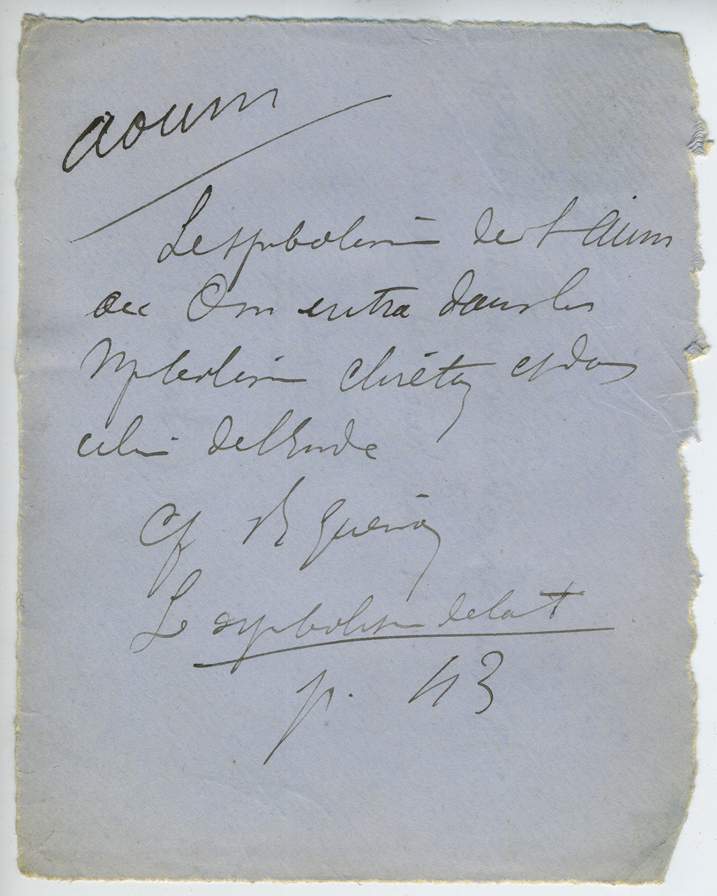 aoum
Le symbolisme de l'Aum
ou Om entra dans les
symbolisme chrétien et dans
celui de l'Inde
Cf R Guénon
Le symbolisme de la +
p. 43